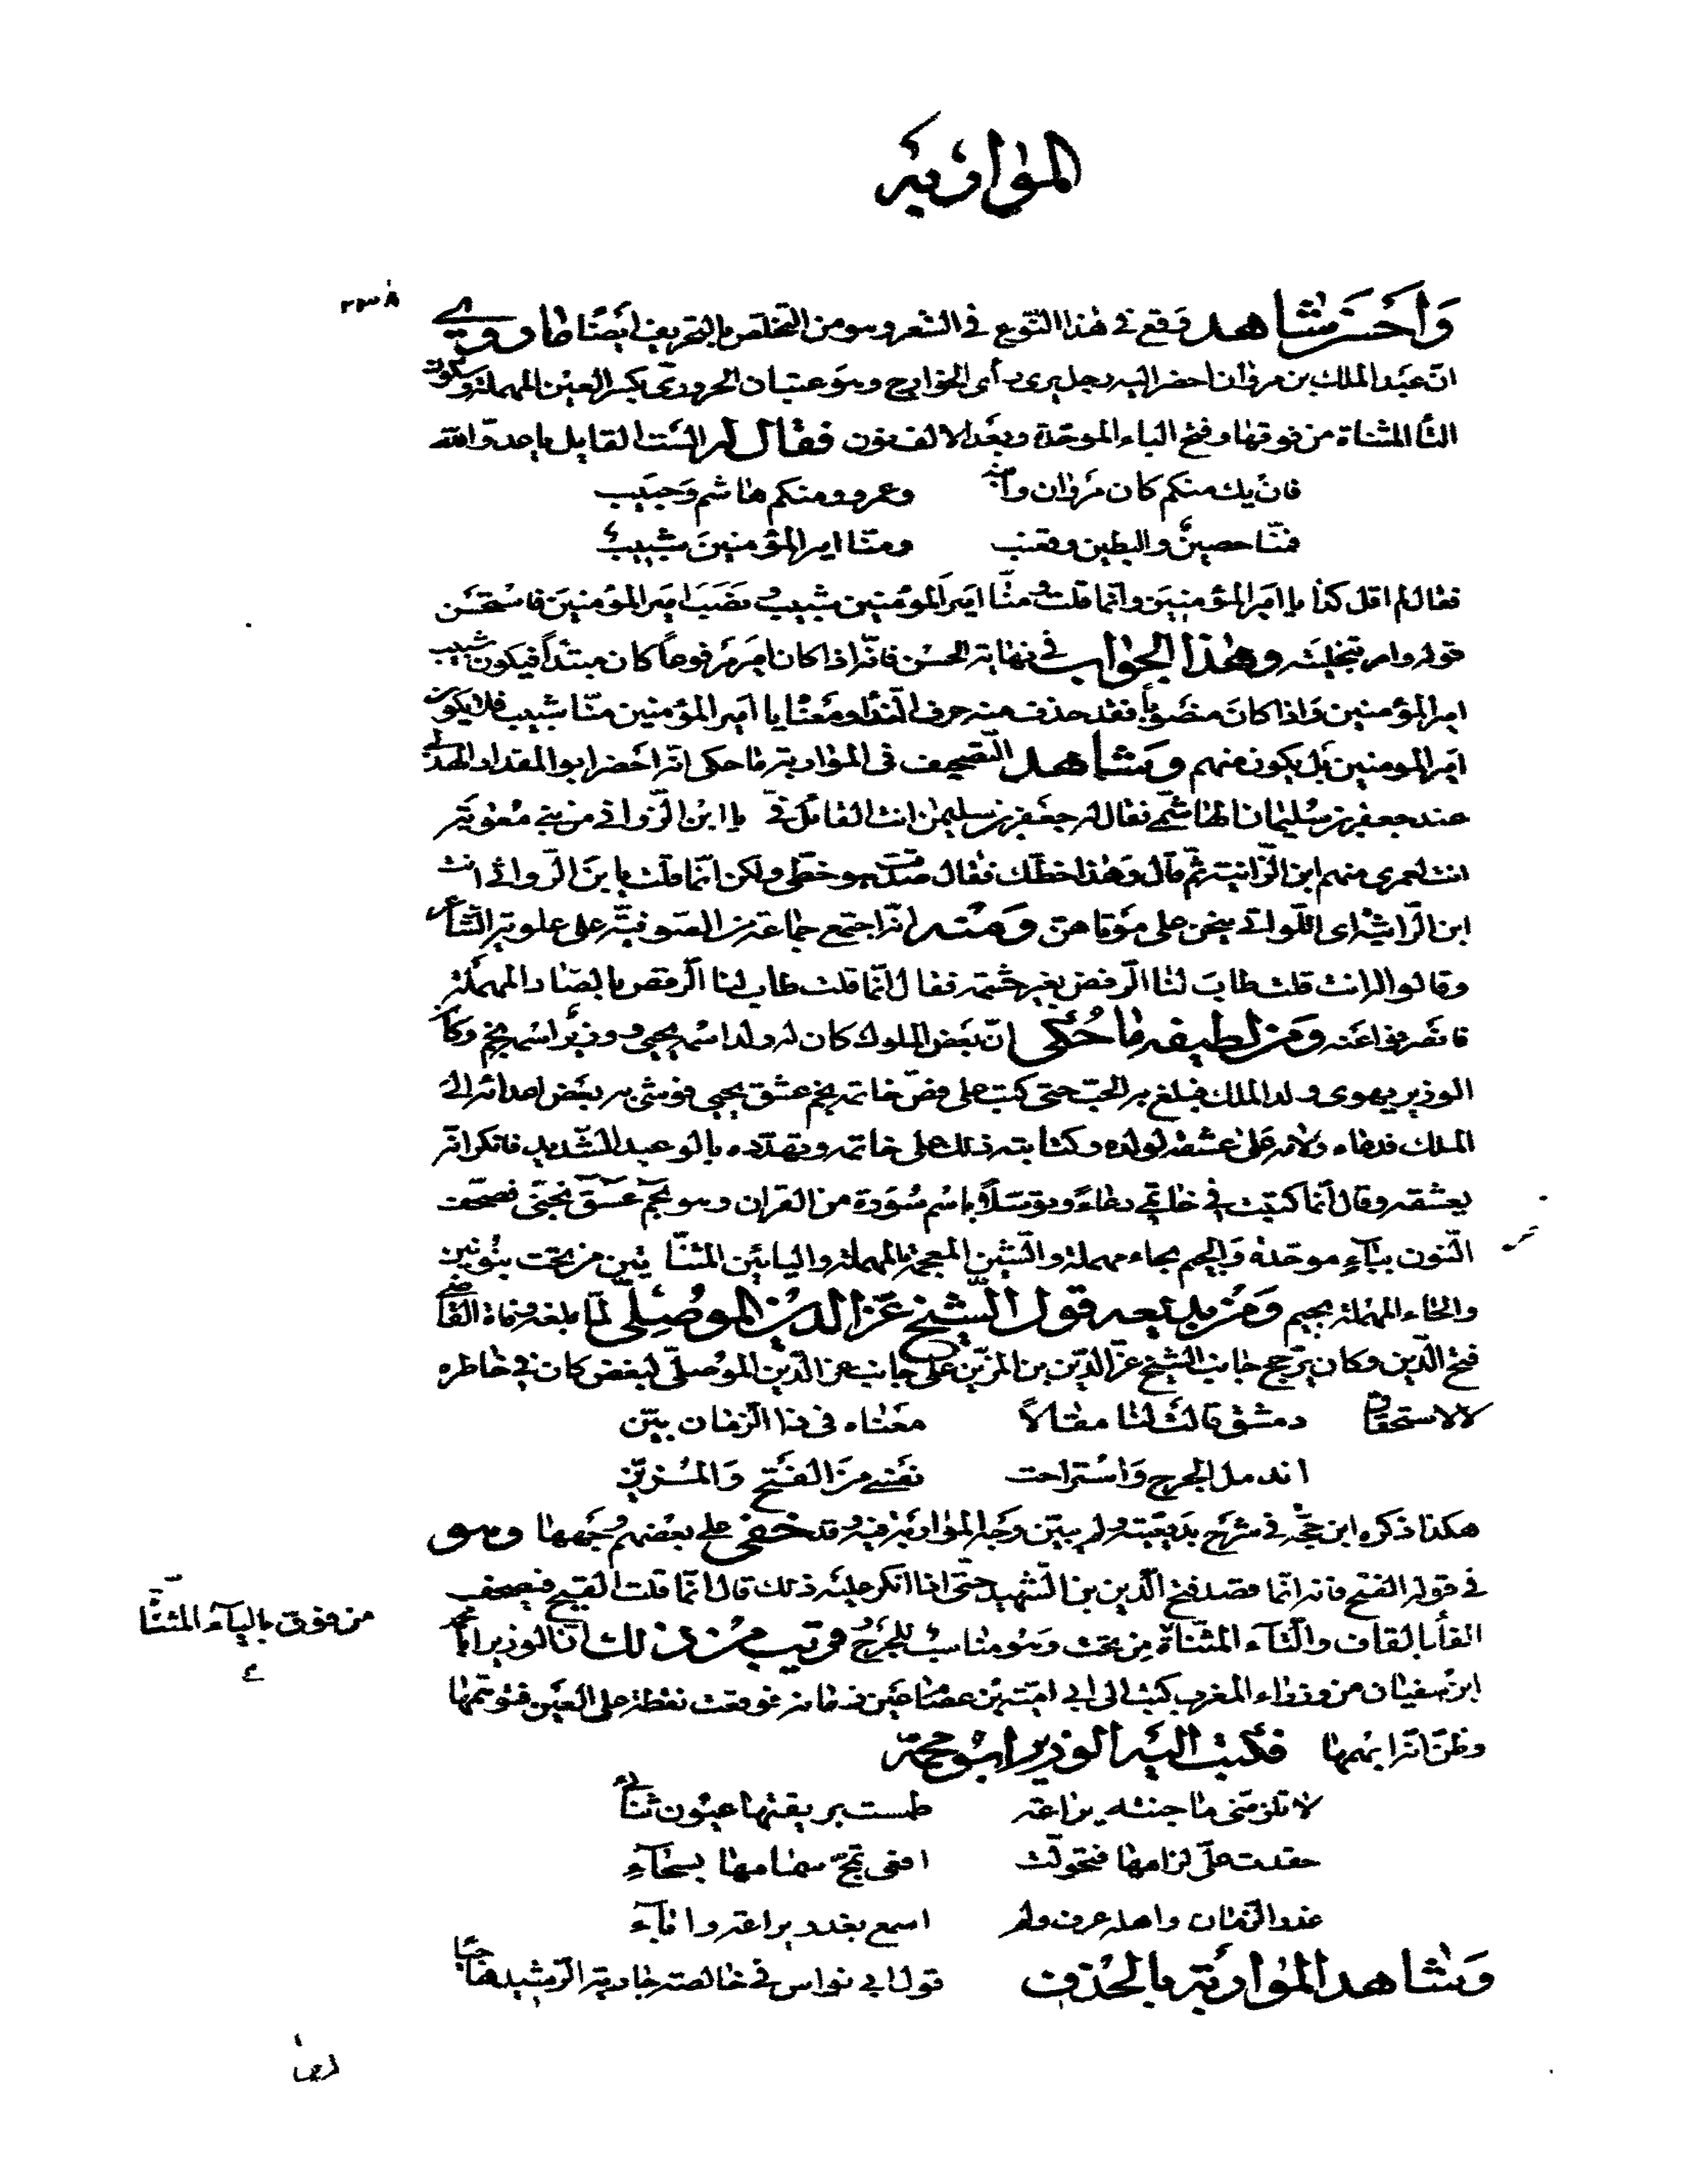 المواربة
٢٣٨
وأحسن شاهد وقع في هذا النوع في الشعر وهو من التخلص بالتحريف أيضا ما روي
ان عبد الملك بن مروان احضر اليه رجل يرى رأى الخوارج وهو عتبان الحرورى بكسر العين المهملة وسكون
التاء المثناة من فوقها وفتح الباء الموحدة وبعد الالف نون فقال له الست القايل يا عدو الله
فان يك منكم كان مروان وابنه وعمرو ومنكم هاشم وحبيب
فمنا حصين والبطين وقعنب ومنا امير المؤمنين شبيب
فقال لم اقل كذا يا امير المؤمنين وانما قلت ومنا امير المؤمنين شبيب ونصب امير المؤمنين فاستحسن
قوله وامر بتخليته وهذا الجواب في نهاية الحسن فانه اذا كان امير مرفوعا كان مبتدأ فيكون شبيب
امير المؤمنين واذا كان منصوبا فقد حذف منه حرف النداء ومعناه يا امير المؤمنين منا شبيب فلا يكون
امير المومنين بل يكون منهم وشاهد التصحيف فى المواربة ما حكى انه احضر ابو المقداد الهذلي
عند جعفر بن سليمان الهاشمي فقال له جعفر بن سليمن انت القائل في يا ابن الزواني من بني معوية
انت لعمرى منهم ابن الزانية ثم قال وهذا خطك فقال صدقت هو خطى ولكن انما قلت يا بن الرواثي انت
ابن الراثية اى اللواتي ينحن على موتاهن ومنه انه اجتمع جماعة من الصوفية على علوية الشاعر
وقالوا له انت قلت طاب لنا الرفض بغير حشمة فقال انما قلت طاب لنا الرقص بالصاد المهملة
فانصرفوا عنه ومن لطيفه ما حكي ان بعض الملوك كان له ولد اسمه يحيى ووزير اسمه نجم وكان
الوزير يهوى ولد الملك فبلغ به الحب حتى كتب على فص خاتمه نجم عشق يحيى فوشى به بعض اعدائه الى
الملك فدعاه ولامه على عشقه لولده وكتابته ذلك على خاتمه وتهدده بالوعيد الشديد فانكر انه
يعشقه وقال انما كتبت في خاتمي دعاء وتوسلا باسم سورة من القران وهو بحم عسق نجني فصحف
النون بباء موحدة والجيم بحاء مهملة والشين المعجمة بالمهملة واليائين المثنا يتين من تحت بنونين
والحاء المهملة بجيم ومن بديعه قول الشيخ عز الدين الموصلي لما بلغه وفاة القاضي
فتح الدين وكان يرجح جانب الشيخ عز الدين بن المزين على جانب عز الدين الموصلى لبغض كان في خاطره
لا لاستحقاق دمشق قالت لنا مقالا معناه في ذا الزمان بين
اندمل الجرح واستراحت نفسي من الفتح والمزين
هكذا ذكره ابن حجة في شرح بديعيته ولم يبين وجه المواربة فيه وقد خفى على بعضهم وجهها وهو
في قوله الفتح فانه انما قصد فتح الدين بن الشهيد حتى اذا انكر عليه ذلك قال انما قلت القيح فيصحف
الفا بالقاف والتاء المثناة من تحت وهو مناسب للجرح وقريب من ذلك ان الوزير ابا محمد
من فوق بالياء المثنا
ابن سفيان من وزراء المغرب كتب الى ابي امية بن عصام عين زمانه فوقعت نقطة على العين فتوهمها
وظن انه ابهمها فكتب اليه الوزير ابو محمد
لا تلزمني ما جنته يراعة طمست بريقتها عيون ثنائي
حقدت علي لزامها فتحولت افعى تمج سمامها بسخاء
غدر الزمان واهله عرف ولم اسمع بغدر يراعة واناء
وشاهد المواربة بالحذف قول ابي نواس في خالصة جارية الرشيد هاجيا